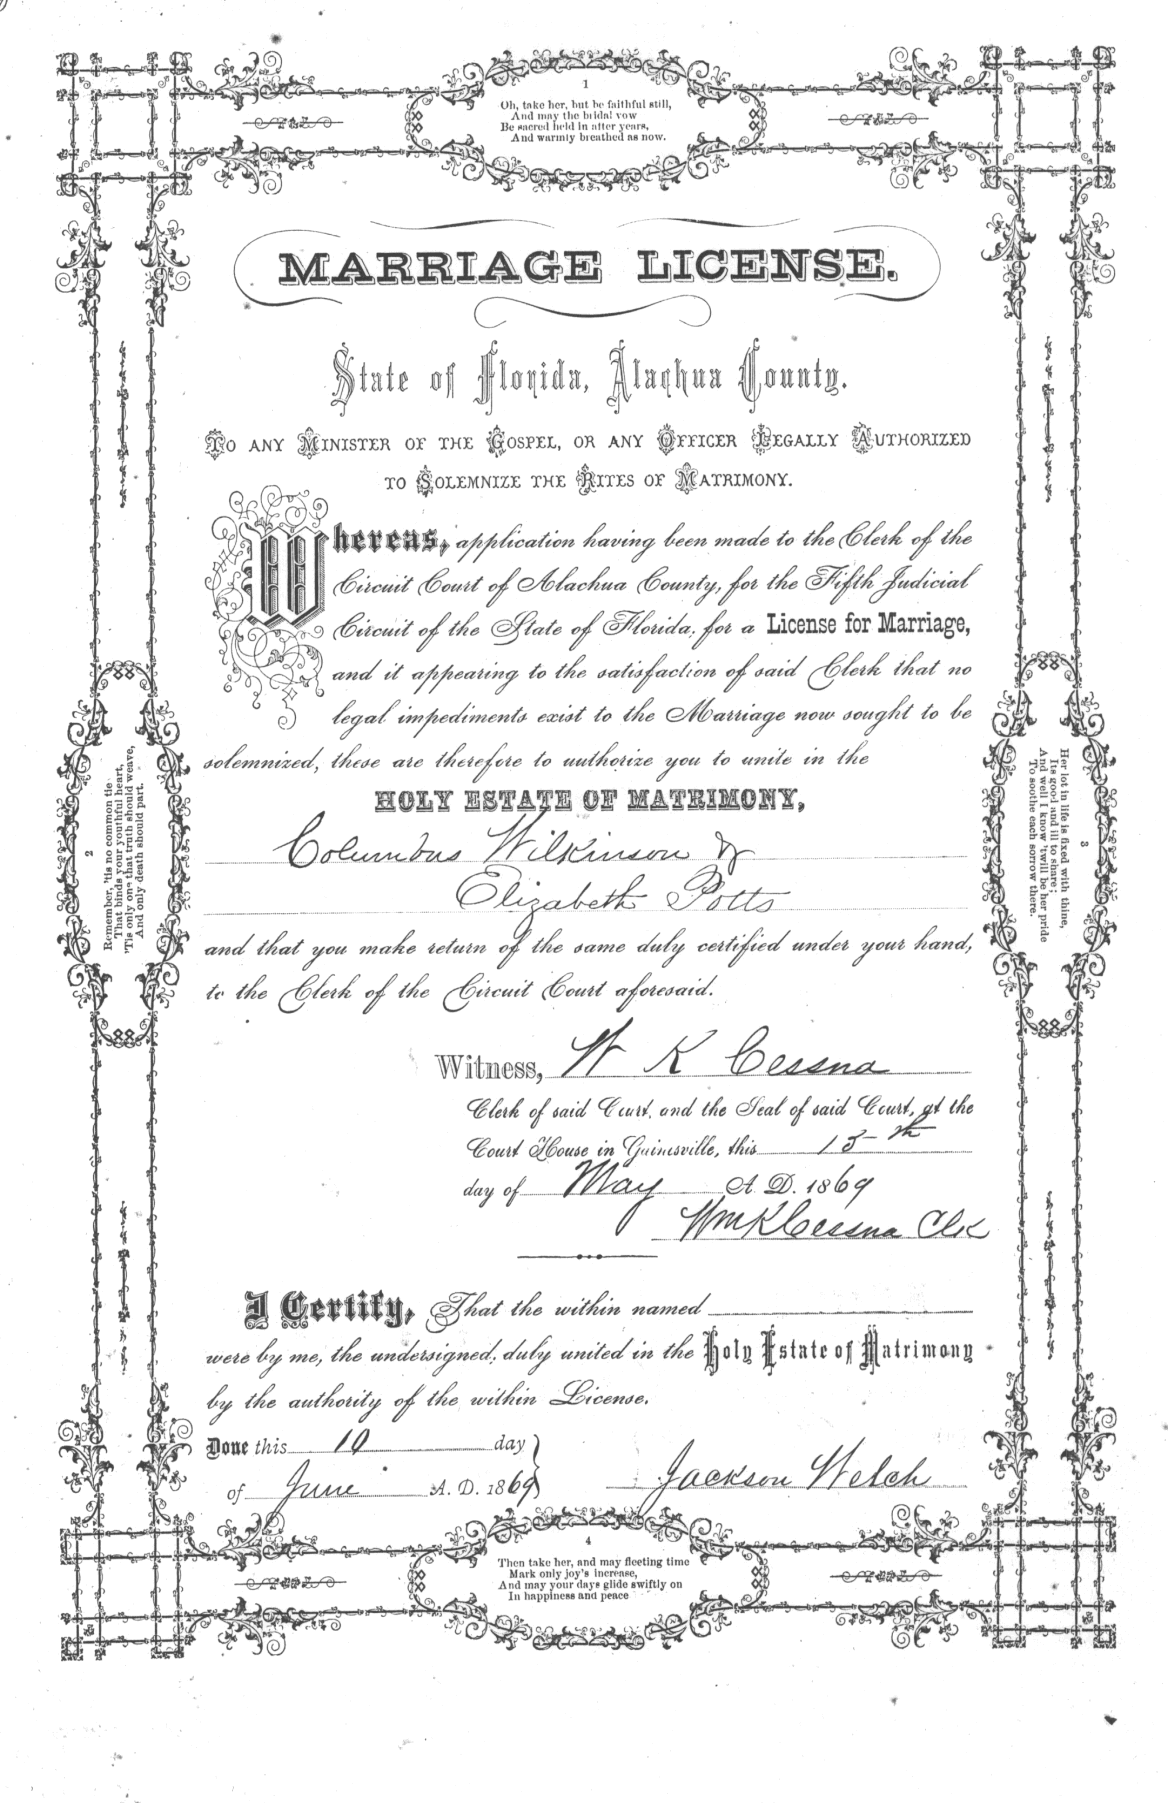 1
Oh, take her, but be faithful still,
And may the bridal vow
Be sacred held in after years,
And warmly breathed as now.
MARRIAGE LICENSE.
State of Florida, Alachua County.
To any Minister of the Gospel, or any Officer Legally Authorized
to Solemnize the Rites of Matrimony.
Whereas, application having been made to the Clerk of the
Circuit Court of Alachua County, for the Fifth Judicial
Circuit of the State of Florida, for a License for Marriage,
and it appearing to the satisfaction of said Clerk that no
legal impediments exist to the Marriage now sought to be
solemnized, these are therefore to authorize you to unite in the
HOLY ESTATE OF MATRIMONY,
Columbus Wilkinson &
Elizabeth Potts
and that you make return of the same duly certified under your hand,
to the Clerk of the Circuit Court aforesaid.
2
Remember, 'tis no common tie
That binds your youthful heart,
'Tis only one that truth should weave,
And only death should part.
3
Her lot in life is fixed with thine,
Its good and ill to share;
And well I know 'twill be her pride
To soothe each sorrow there.
Witness, W K Cessna
Clerk of said Court, and the Seal of said Court, at the
Court House in Gainesville, this 15th
day of May A. D. 1869
Wm K Cessna Clk
I Certify, That the within named
were by me, the undersigned, duly united in the Holy Estate of Matrimony
by the authority of the within License.
Done this 10 day
of June A. D. 1869
Jackson Welch
4
Then take her, and may fleeting time
Mark only joy's increase,
And may your days glide swiftly on
In happiness and peace